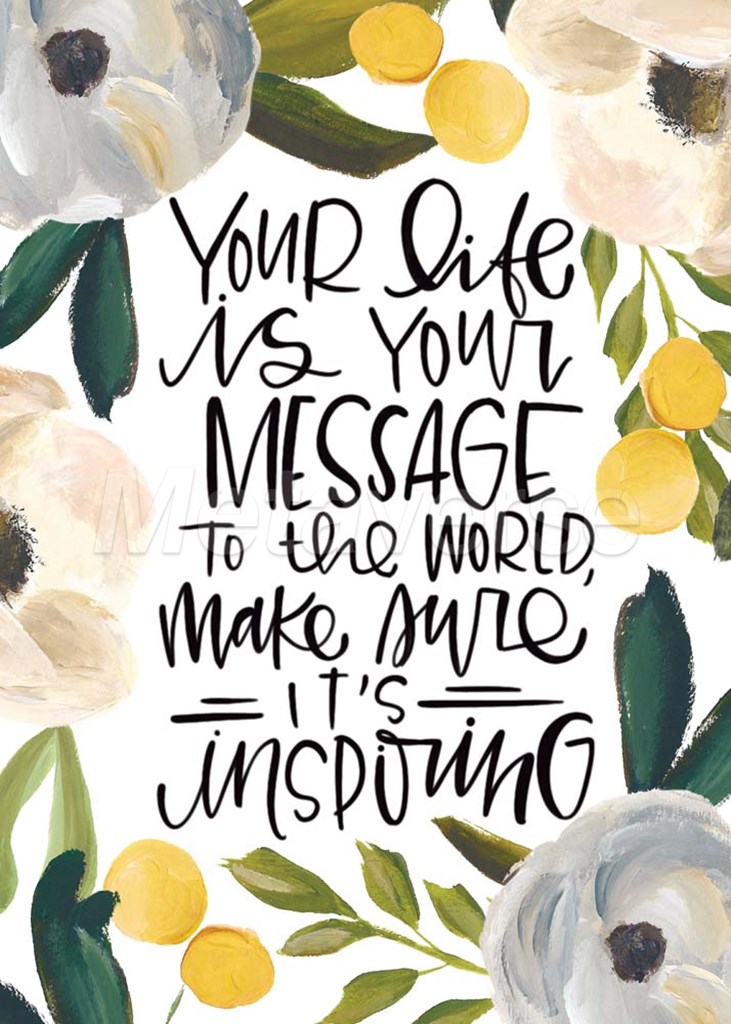 YOUR life
is YOUR
MESSAGE
TO the WORLD,
make sure
IT'S
INSPIRING
Metaverse